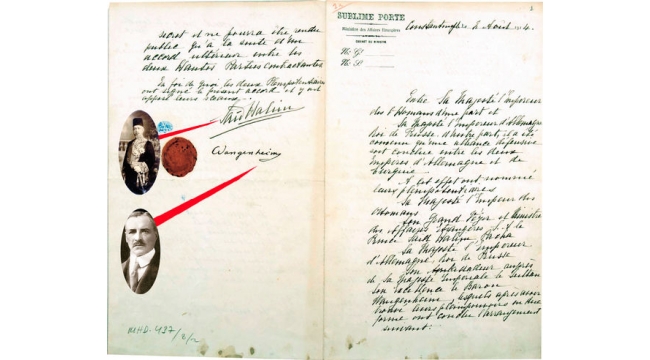 secret et ne pourra être rendu
public qu'à la suite d'un
accord ultérieur entre les
deux Hautes Parties contractantes
En foi de quoi les deux Plénipotentiaires
ont signé le présent accord et y ont
apposé leurs sceaux.
Halim
Wangenheim
MHD-437/8/2
SUBLIME PORTE
Ministère des Affaires Étrangères
Constantinople 2 Août 1914.
Entre Sa Majesté l'Empereur
des Ottomans d'une part et
Sa Majesté l'Empereur d'Allemagne
Roi de Prusse d'autre part, il a été
convenu qu'une alliance défensive
soit conclue entre les deux
Empires d'Allemagne et de
Turquie.
A cet effet ont nommé
leurs plénipotentiaires
Sa Majesté l'Empereur des
Ottomans
Son Grand Vézir et Ministre
des Affaires Etrangères S. A. le
Prince Saïd Halim Pacha
Sa Majesté l'Empereur
d'Allemagne, Roi de Prusse
Son Ambassadeur auprès
de Sa Majesté Impériale le Sultan
Son Excellence le Baron
Wangenheim lesquels après avoir
leurs pleinpouvoirs en due
forme ont conclu l'arrangement
suivant: